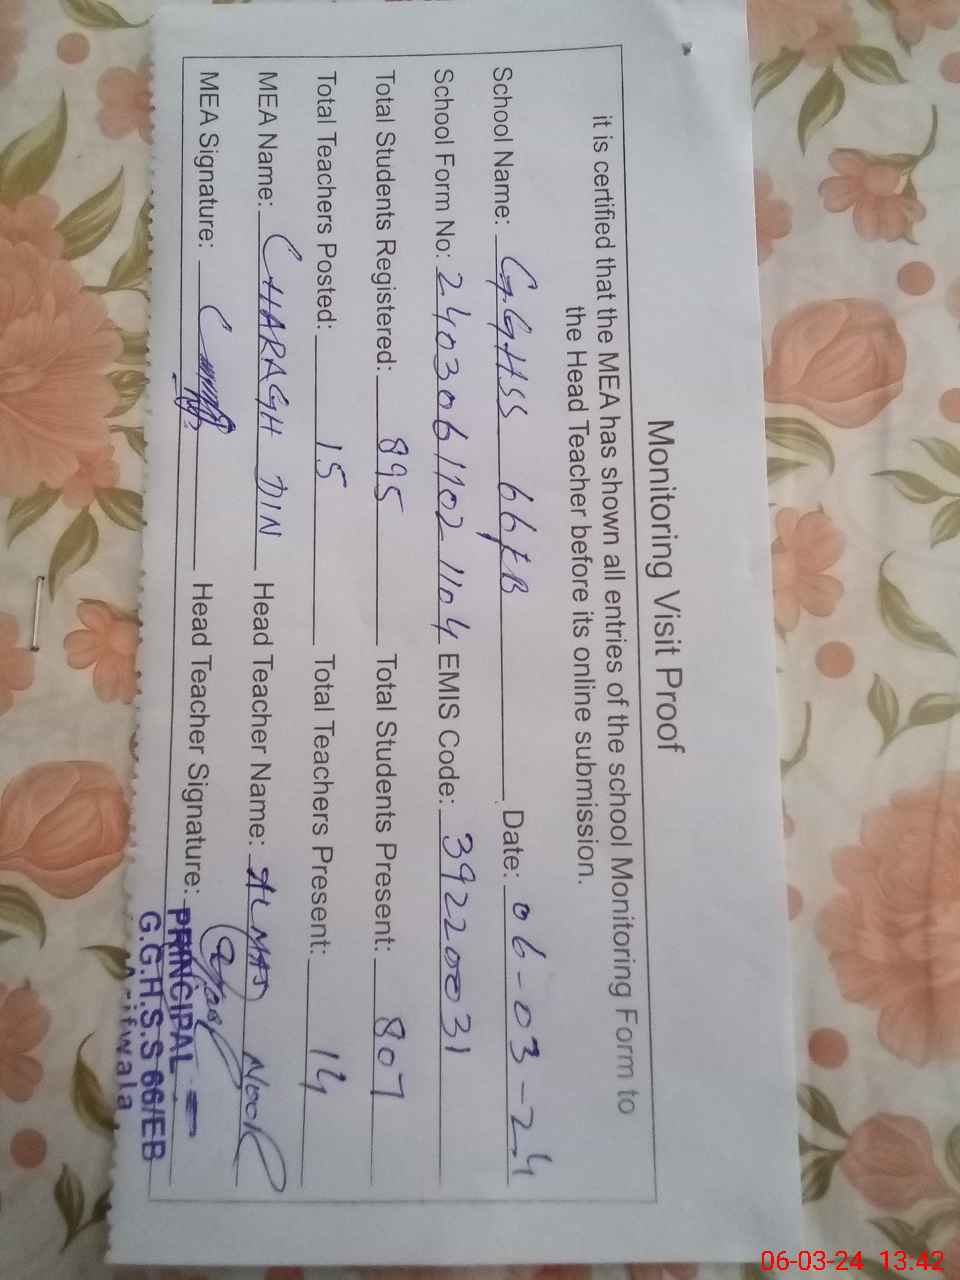 Monitoring Visit Proof
it is certified that the MEA has shown all entries of the school Monitoring Form to
the Head Teacher before its online submission.
School Name: G.GHSS 66/EB Date: 06-03-24
School Form No: 24030611021104 EMIS Code: 39220031
Total Students Registered: 895 Total Students Present: 807
Total Teachers Posted: 15 Total Teachers Present: 14
MEA Name: CHARAGH DIN Head Teacher Name: ALMAS NOOR
MEA Signature: Head Teacher Signature:
PRINCIPAL
G.G.H.S.S 66/EB
Arifwala
06-03-24 13:42